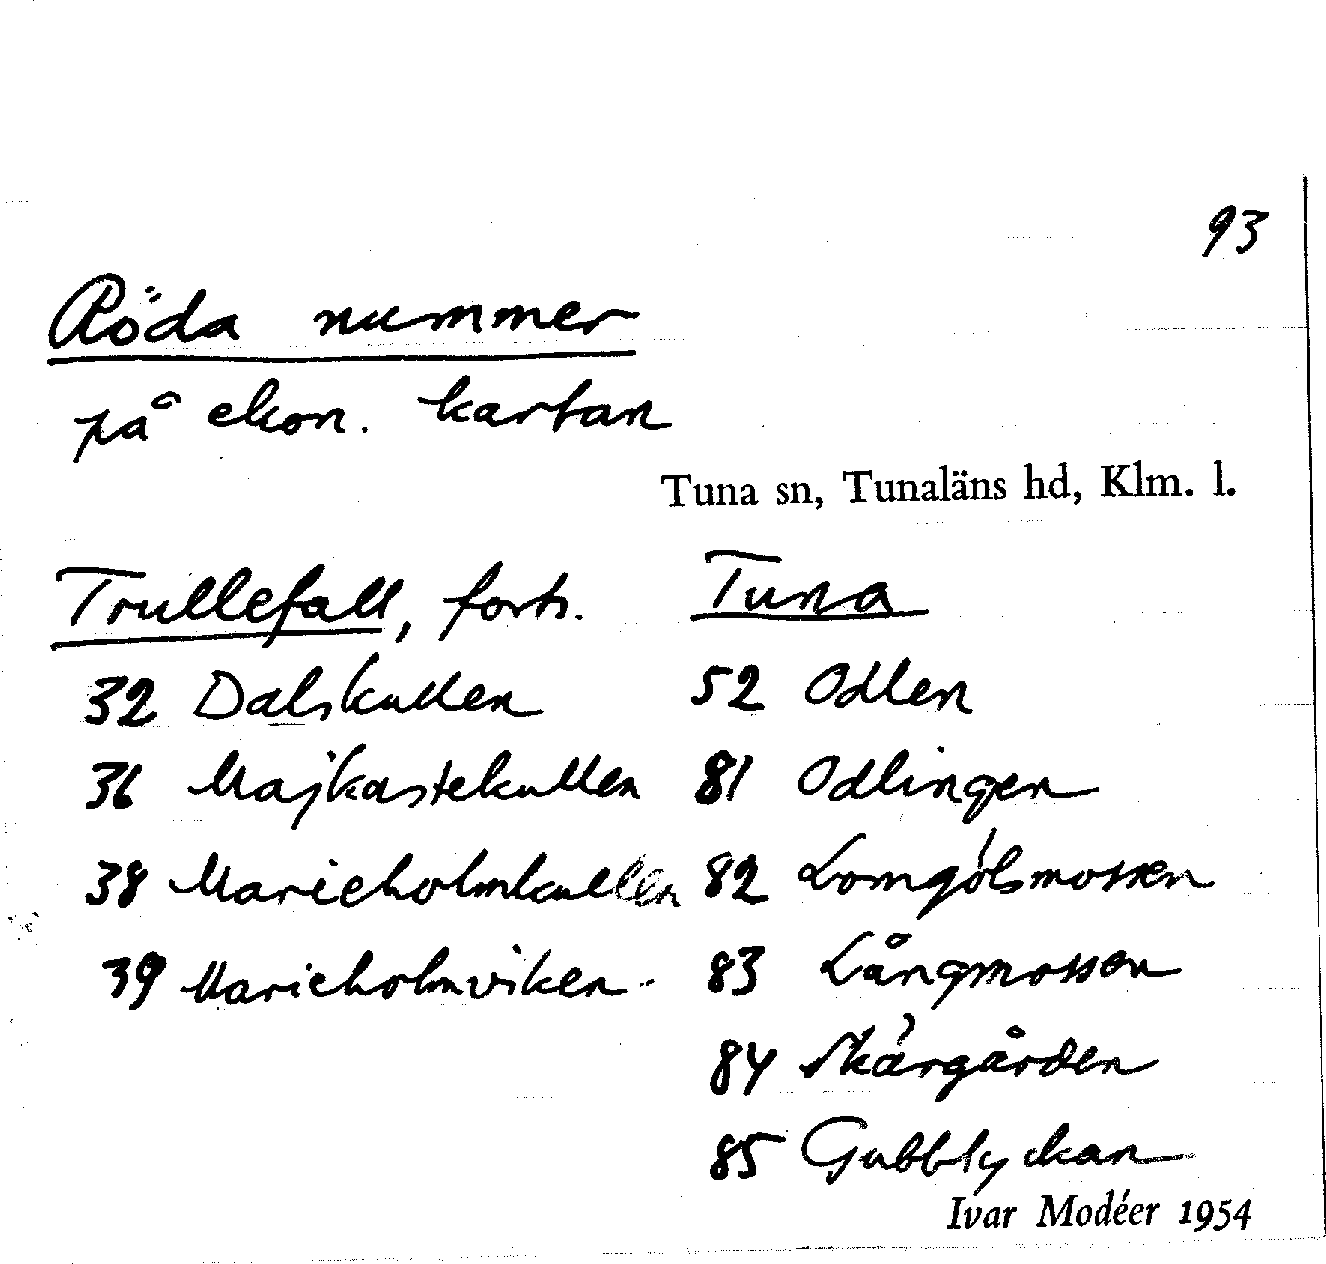 93
Röda nummer
på ekon. kartan
Tuna sn, Tunaläns hd, Klm. l.
Trullefall, forts.
32 Dalskullen
36 Majkastekullen
38 Marieholmkullen
39 Marieholmviken
Tuna
52 Odlen
81 Odlingen
82 Lomgölsmossen
83 Långmossen
84 Skärgården
85 Gubblyckan
Ivar Modéer 1954